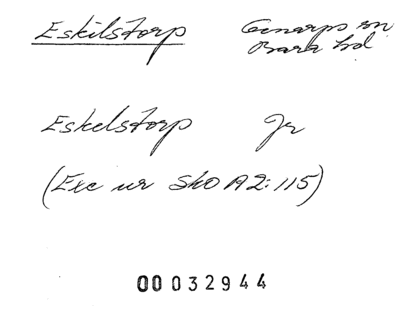 Eskilstorp Genarps sn
Bara hd
Eskelstorp Jr
(Exc ur SkO A2:115)
00032944